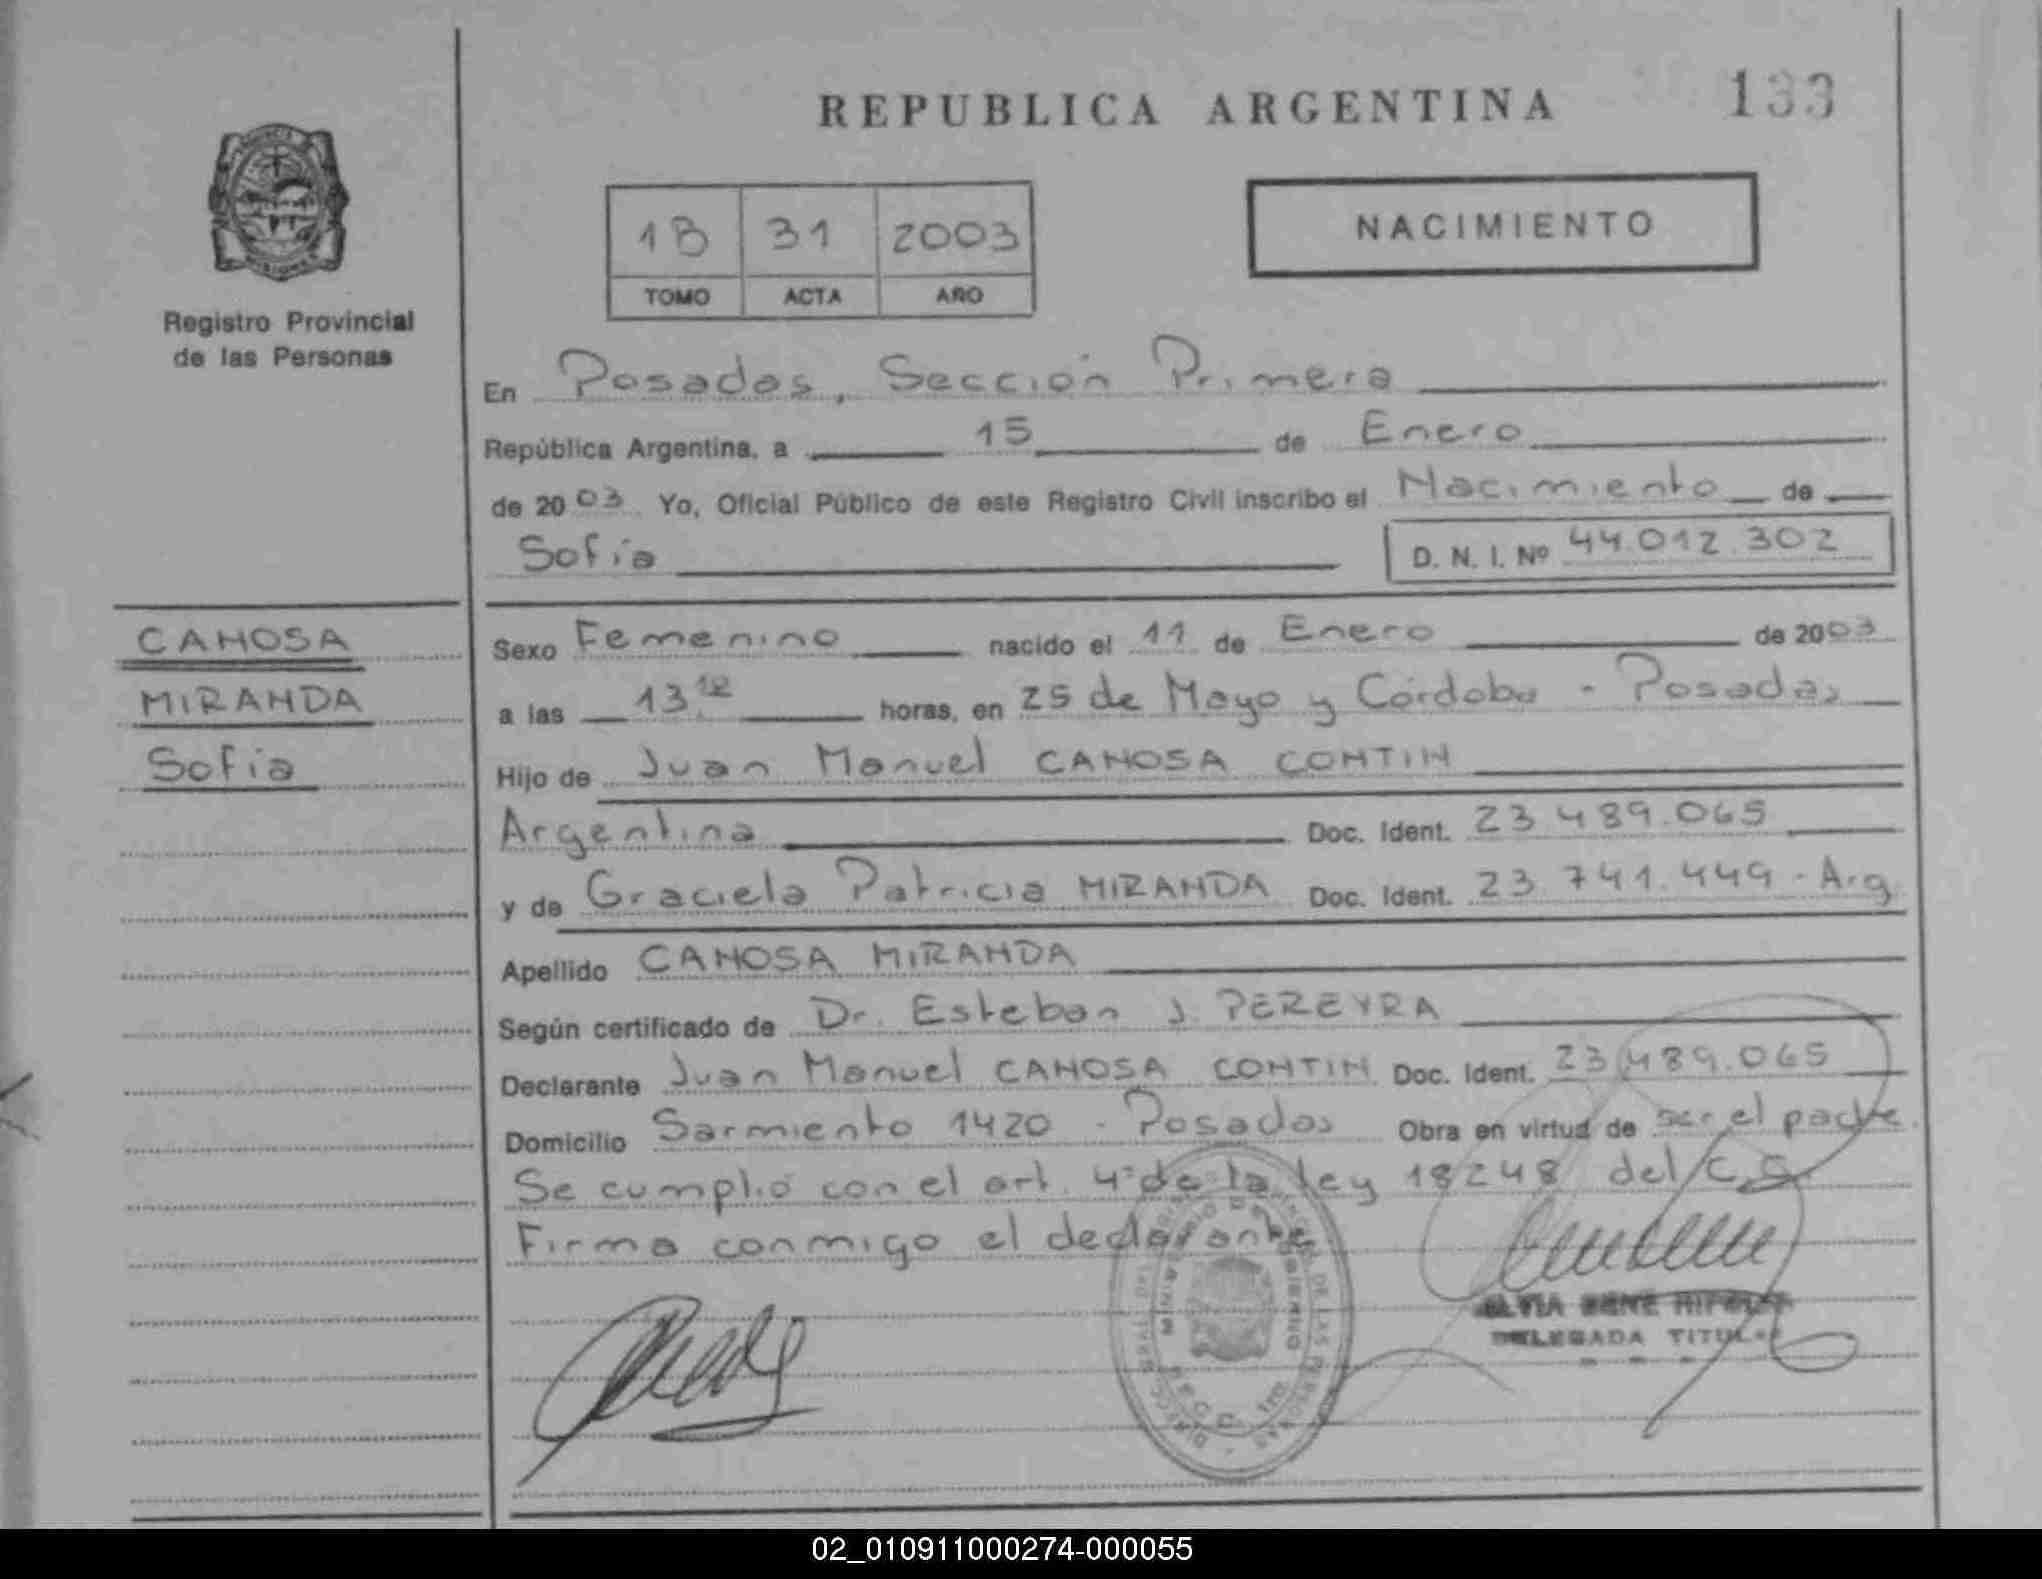 REPUBLICA ARGENTINA
133
Registro Provincial
de las Personas
1B 31 2003
TOMO ACTA AÑO
NACIMIENTO
En Posadas, Sección Primera
República Argentina, a 15 de Enero
de 2003 Yo, Oficial Público de este Registro Civil inscribo el Nacimiento de
Sofía D. N. I. Nº 44.012.302
CANOSA
MIRANDA
Sofía
Sexo Femenino nacido el 11 de Enero de 2003
a las 13,12 horas, en 25 de Mayo y Córdoba - Posadas
Hijo de Juan Manuel CANOSA CONTIN
Argentina Doc. Ident. 23.489.065
y de Graciela Patricia MIRANDA Doc. Ident. 23.741.449 - Arg
Apellido CANOSA MIRANDA
Según certificado de Dr. Esteban J. PEREYRA
Declarante Juan Manuel CANOSA CONTIN Doc. Ident. 23.489.065
Domicilio Sarmiento 1420 - Posadas Obra en virtud de ser el padre.
Se cumplió con el art. 4º de la ley 18248 del C.C.
Firma conmigo el declarante
MINISTERIO DE GOBIERNO
DE LAS PERSONAS
DELEGADA TITULAR
02_010911000274-000055